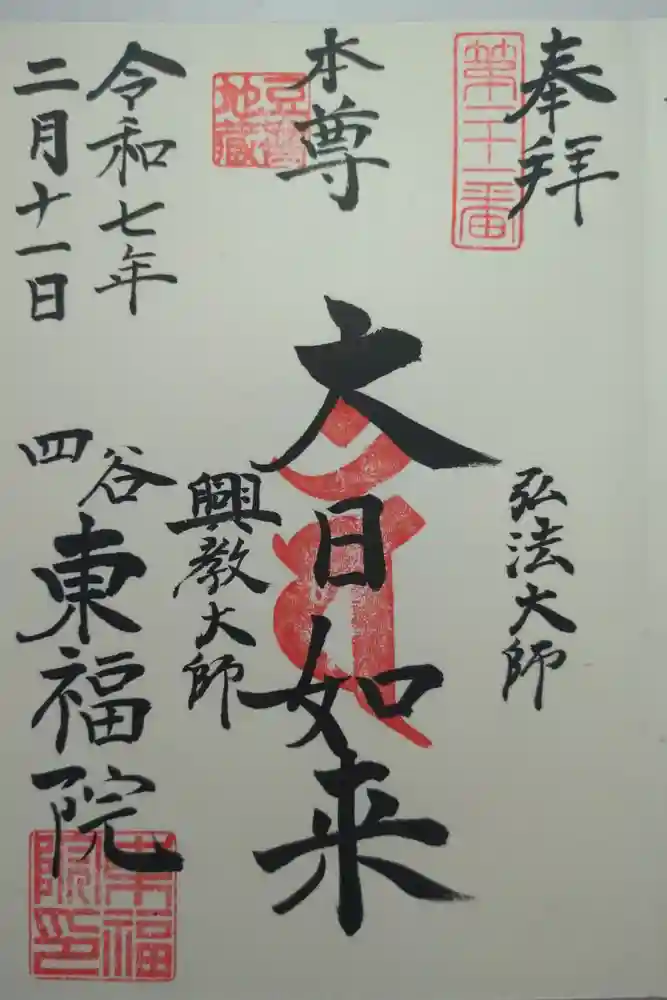 奉拝
第二十一番
本尊
豆腐地蔵
弘法大師
大日如来
興教大師
令和七年
二月十一日
四谷
東福院
東福院印